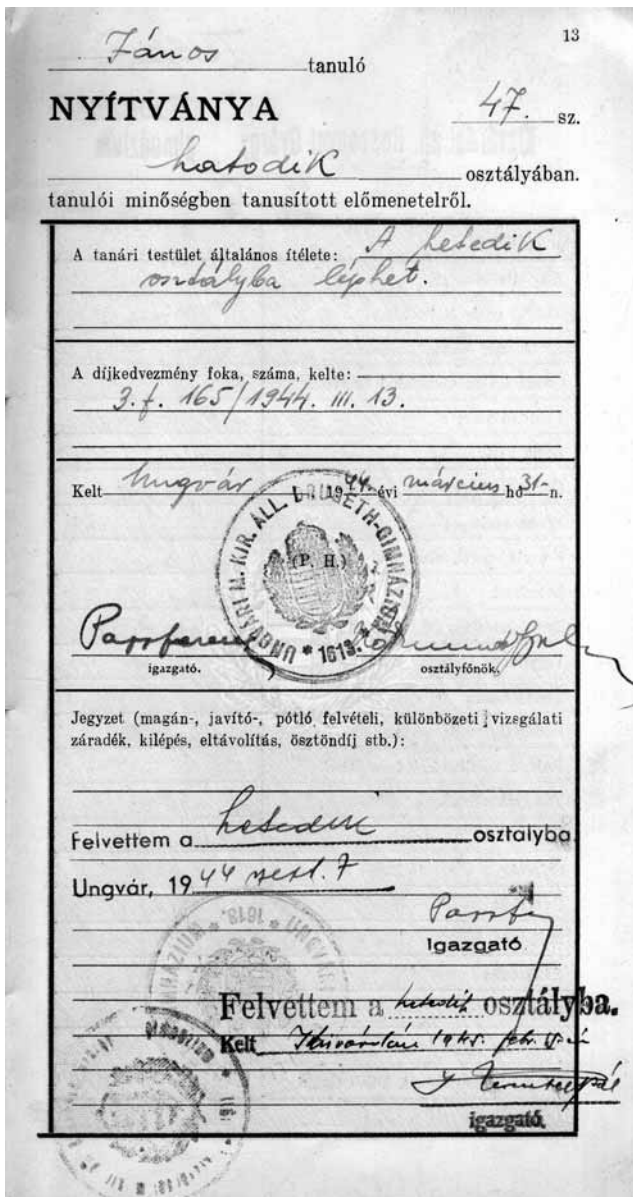 13
János tanuló
NYÍTVÁNYA 47. sz.
hatodik osztályában.
tanulói minőségben tanusított előmenetelről.
A tanári testület általános ítélete: A hetedik
osztályba léphet.
A díjkedvezmény foka, száma, kelte:
3. f. 165/1944. III. 13.
Kelt Ungvár 1944. évi március hó 31-n.
UNGVÁRI M. KIR. ÁLL. DRUGETH-GIMNÁZIUM * 1613. *
(P. H.)
igazgató. osztályfőnök.
Jegyzet (magán-, javító-, pótló felvételi, különbözeti vizsgálati
záradék, kilépés, eltávolítás, ösztöndíj stb.):
Felvettem a hetedik osztalyba
Ungvár, 1944 szept. 7
Igazgató
* 1613. * UNGVÁRI
Felvettem a hetedik osztályba.
Kelt 1945. febr.
igazgató.